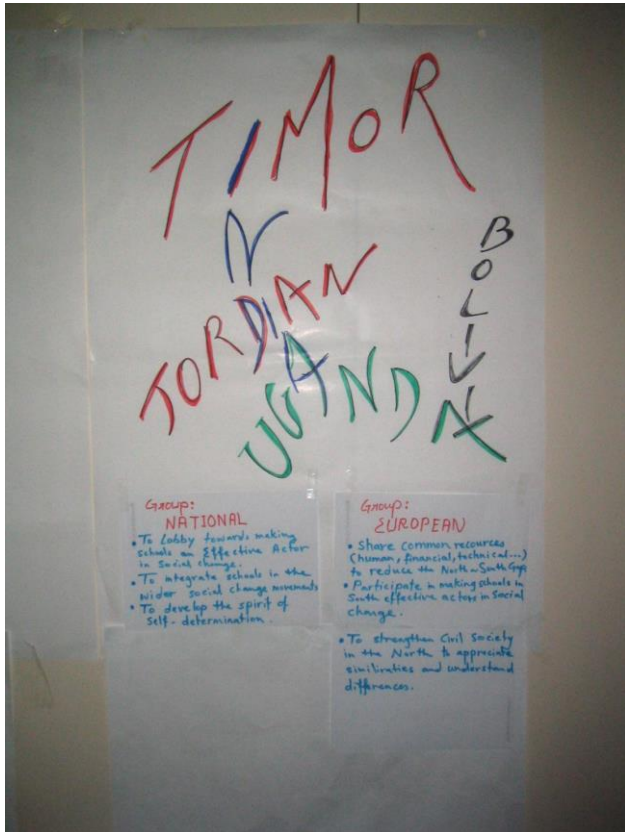 TIMOR
INDIA
JORDAN
UGANDA
BOLIVIA
Group:
NATIONAL
• To Lobby towards making
schools an Effective Actor
in Social change.
• To integrate schools in the
wider social change movements
• To develop the spirit of
self-determination.
Group:
EUROPEAN
• Share common recources
(human, financial, technical...)
to reduce the North-South Gaps
• Participate in making schools in
South effective actors in Social
change.
• To strengthen Civil Society
in the North to appreciate
similiraties and understand
differences.